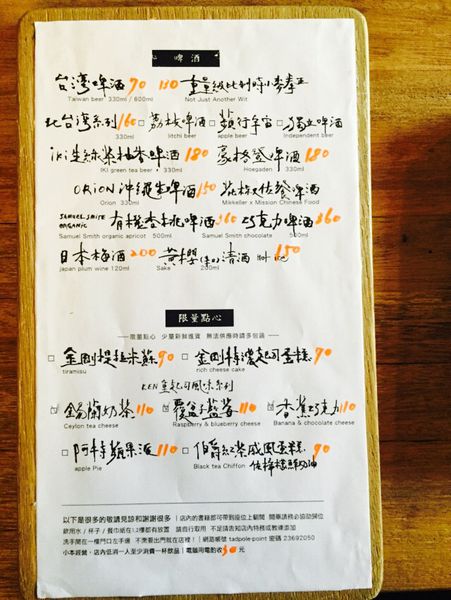 啤酒
台灣啤酒 70 130 重量級比利時小麥拳王
Taiwan beer 330ml / 600ml Not Just Another Wit
北台灣系列 160 □荔枝啤酒 □蘋果啤酒 □獨立啤酒
330ml litchi beer apple beer Independent beer
iki 生綠茶柚香啤酒 180 豪格登啤酒 180
IKI green tea beer 330ml Hoegaarden 330ml
ORiON 沖繩生啤酒 150
Orion 330ml Mikkeller x Mission Chinese Food
SAMUEL SMITH ORGANIC 有機杏桃啤酒 260 巧克力啤酒 260
Samuel Smith organic apricot 500ml Samuel Smith chocolate 500ml
日本梅酒 200 黃櫻 清酒 Hot ice 150
japan plum wine 120ml Saka 200ml
限量點心
限量點心 少量新鮮進貨 無法供應時請多包涵
□ 金剛提拉米蘇 90 □ 金剛特濃起司蛋糕 90
tiramisu rich cheese cake
KEN 重起司風味系列
錫蘭奶茶 110 覆盆子藍莓 110 香蕉巧克力 110
Ceylon tea cheese Raspberry & blueberry cheese Banana & chocolate cheese
□ 阿嬤蘋果派 110 □ 伯爵紅茶戚風蛋糕 90
apple Pie Black tea Chiffon 佐檸檬鮮奶油
以下是很多的敬請見諒和謝謝很多 | 店內的書籍都可帶到座位上翻閱 閱畢請務必協助歸位
飲用水 / 杯子 / 餐巾紙在1.2樓都有放置 請自行取用 不足請告知店內特務或教練添加
洗手間在一樓門口左手邊 不需要出門就在店裡! | 網路帳號 tadpole-point 密碼 23692050
小本經營,店內低消一人至少消費一杯飲品 | 電腦用電酌收30元